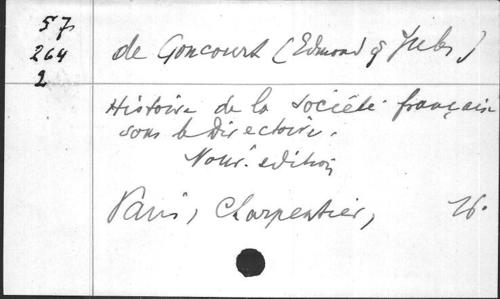 57
264
2
de Goncourt (Edmond & Jules)
Histoire de la société française
sous le Directoire.
Nouv. edition
Paris, Charpentier, 16.